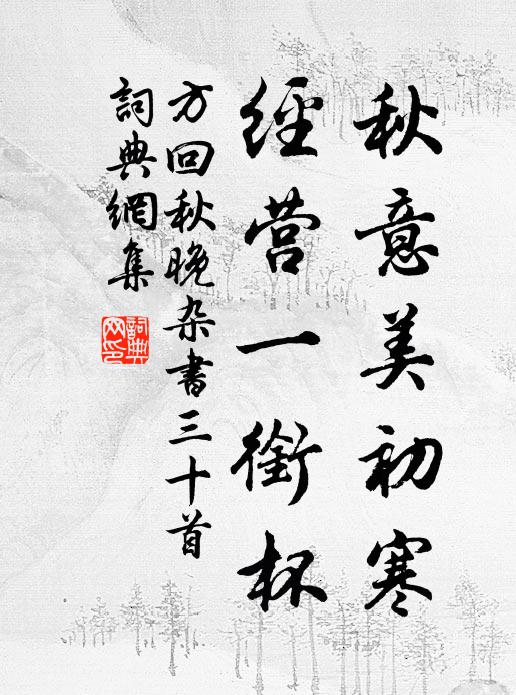 秋意美初寒
經营一銜杯
方回秋晚杂書三十首
詞典網集
詞典
网印